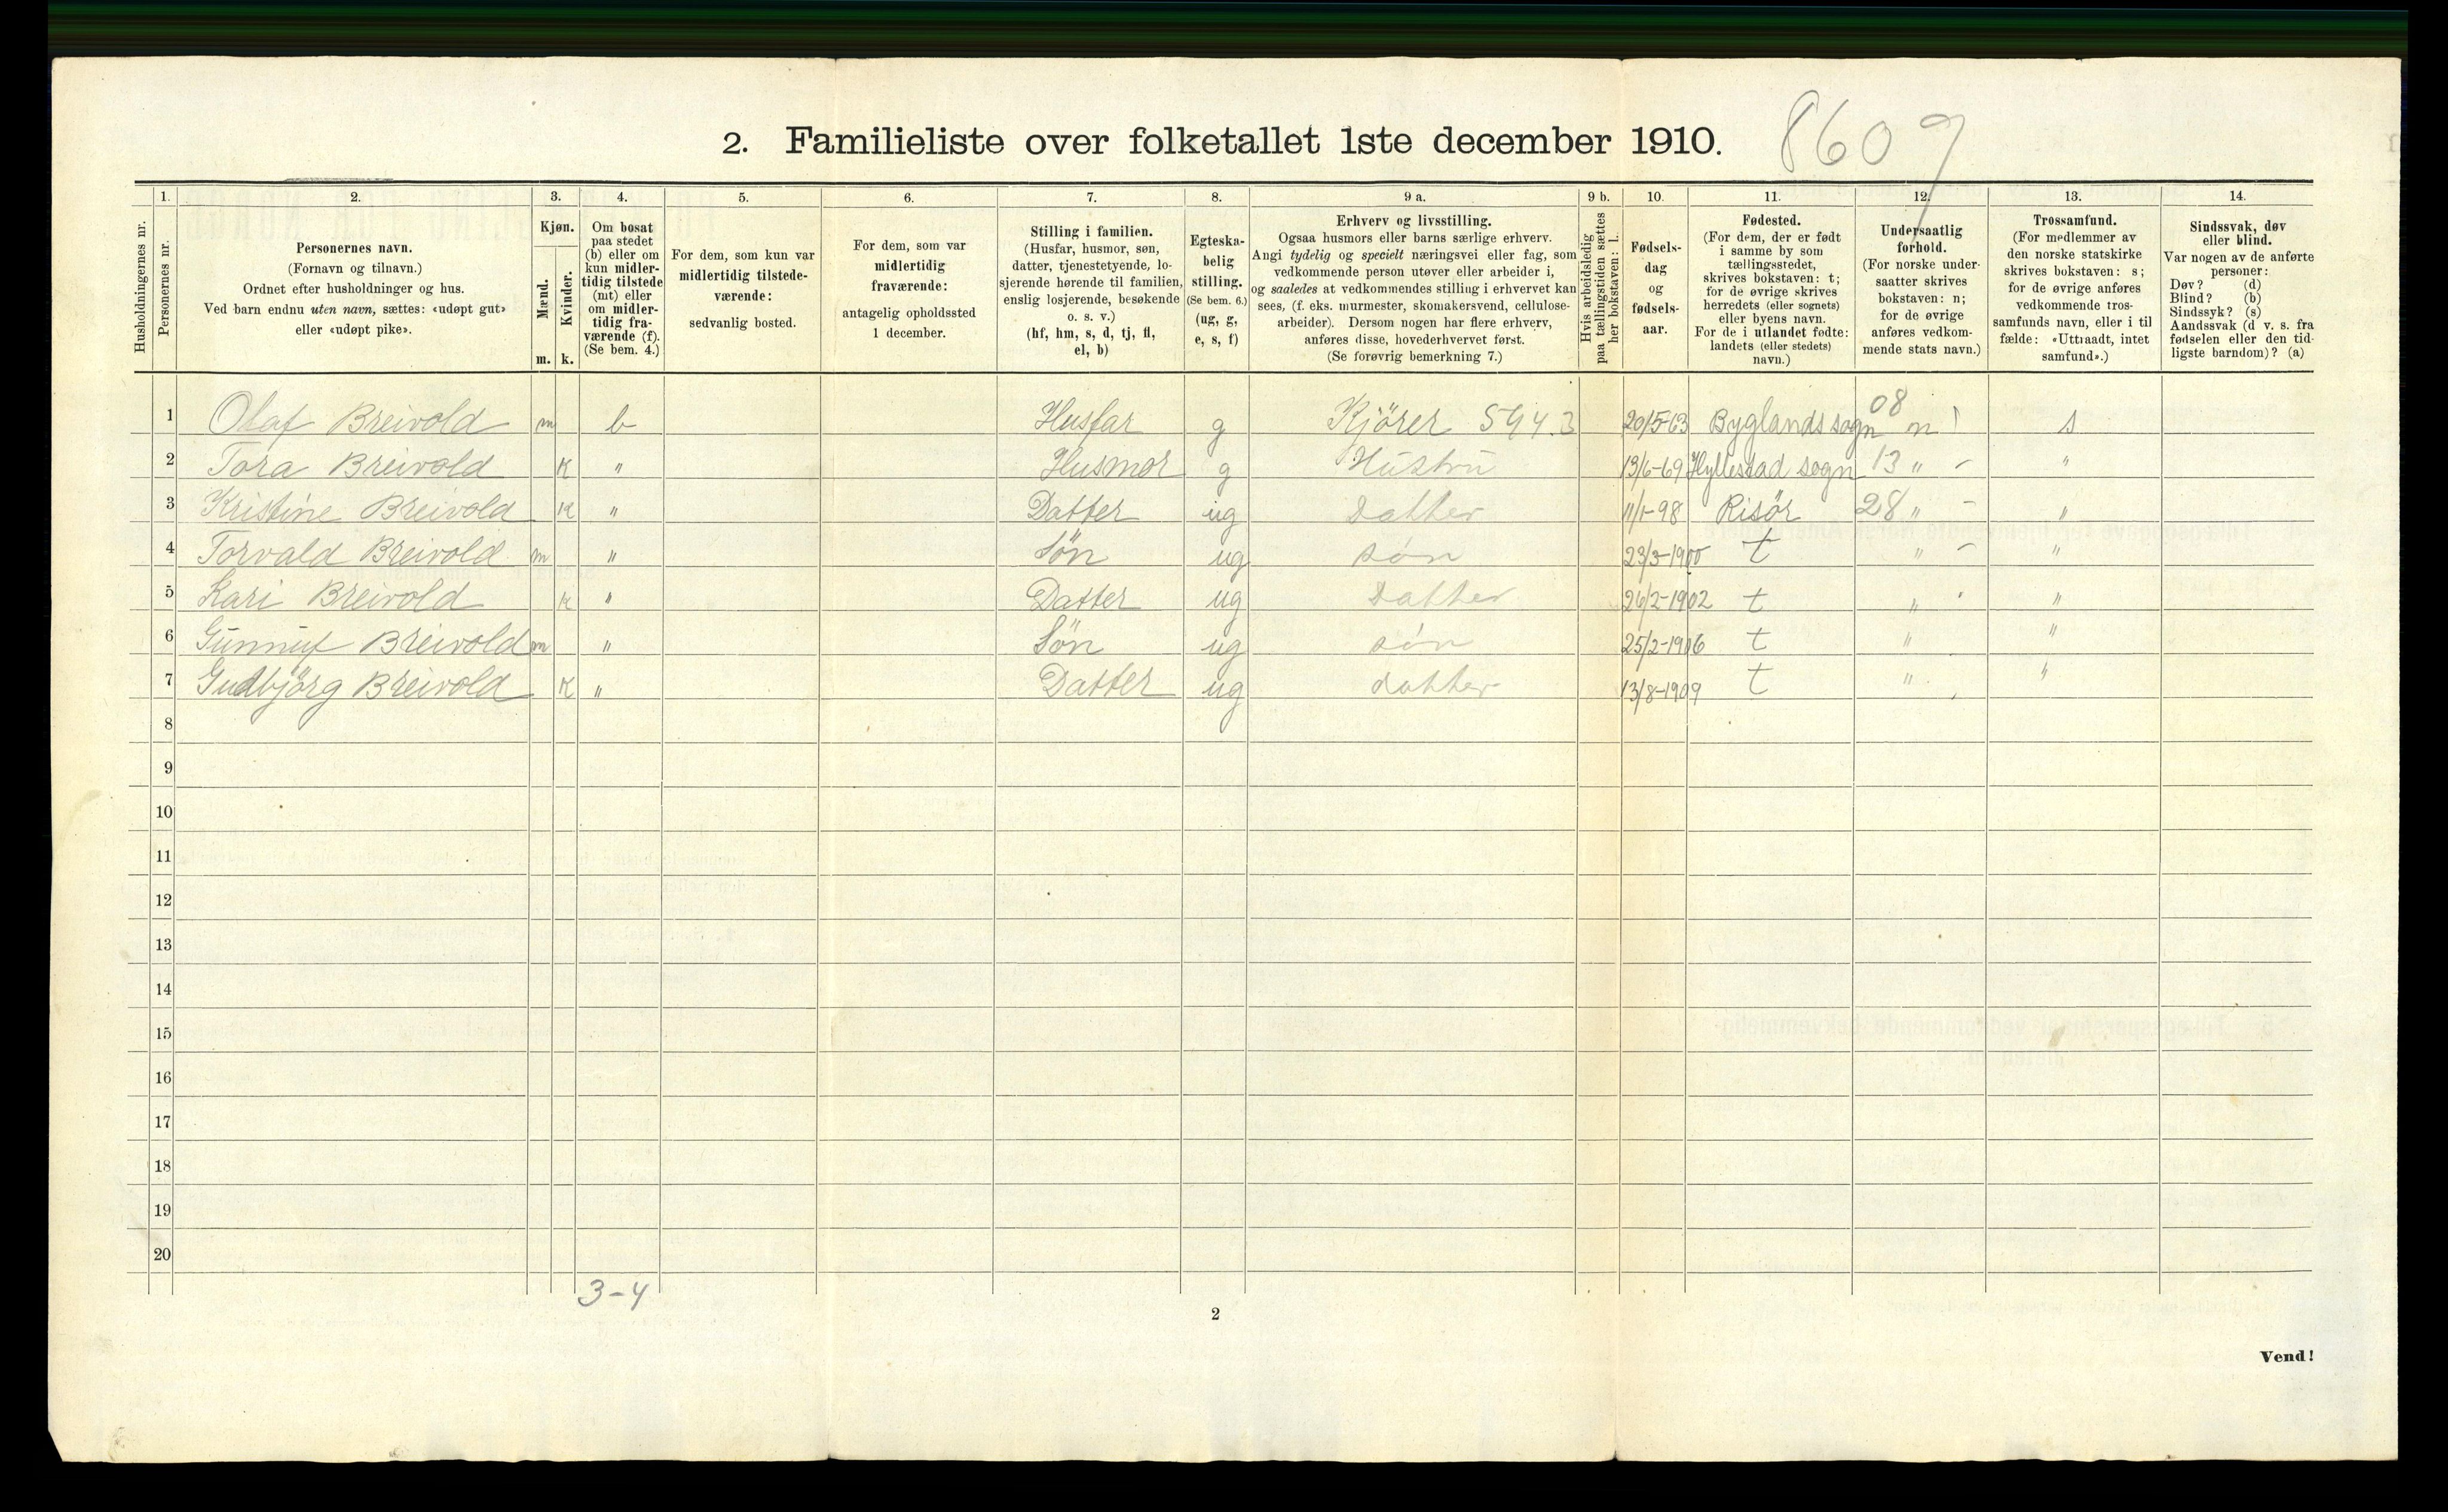 2. Familieliste over folketallet 1ste december 1910. 8609
Husholdningernes nr.
1. Personernes nr.
2. Personernes navn.
(Fornavn og tilnavn.)
Ordnet efter husholdninger og hus.
Ved barn endnu uten navn, sættes: «udøpt gut»
eller «udøpt pike».
3. Kjøn.
Mænd. m.
Kvinder. k.
4. Om bosat
paa stedet
(b) eller om
kun midler-
tidig tilstede
(mt) eller
om midler-
tidig fra-
værende (f).
(Se bem. 4.)
5. For dem, som kun var
midlertidig tilstede-
værende:
sedvanlig bosted.
6. For dem, som var
midlertidig
fraværende:
antagelig opholdssted
1 december.
7. Stilling i familien.
(Husfar, husmor, søn,
datter, tjenestetyende, lo-
sjerende hørende til familien,
enslig losjerende, besøkende
o. s. v.)
(hf, hm, s, d, tj, fl,
el, b)
8. Egteska-
belig
stilling.
(Se bem. 6.)
(ug, g,
e, s, f)
9 a. Erhverv og livsstilling.
Ogsaa husmors eller barns særlige erhverv.
Angi tydelig og specielt næringsvei eller fag, som
vedkommende person utøver eller arbeider i,
og saaledes at vedkommendes stilling i erhvervet kan
sees, (f. eks. murmester, skomakersvend, cellulose-
arbeider). Dersom nogen har flere erhverv,
anføres disse, hovederhvervet først.
(Se forøvrig bemerkning 7.)
9 b. Hvis arbeidsledig
paa tællingstiden sættes
her bokstaven: l.
10. Fødsels-
dag
og
fødsels-
aar.
11. Fødested.
(For dem, der er født
i samme by som
tællingsstedet,
skrives bokstaven: t;
for de øvrige skrives
herredets (eller sognets)
eller byens navn.
For de i utlandet fødte:
landets (eller stedets)
navn.)
12. Undersaatlig
forhold.
(For norske under-
saatter skrives
bokstaven: n;
for de øvrige
anføres vedkom-
mende stats navn.)
13. Trossamfund.
(For medlemmer av
den norske statskirke
skrives bokstaven: s;
for de øvrige anføres
vedkommende tros-
samfunds navn, eller i til
fælde: «Uttraadt, intet
samfund».)
14. Sindssvak, døv
eller blind.
Var nogen av de anførte
personer:
Døv? (d)
Blind? (b)
Sindssyk? (s)
Aandssvak (d v. s. fra
fødselen eller den tid-
ligste barndom)? (a)
1 Olaf Breivold m b Husfar g Kjörer 594.3 20/5-63 Byglands sogn 08 n s
2 Tora Breivold k " Husmor g Hustru 13/6-69 Hyllestad sogn 13 " - "
3 Kristine Breivold k " Datter ug Datter 11/1-98 Risör 28 " - "
4 Torvald Breivold m " Sön ug sön 23/3-1900 t " - "
5 Kari Breivold k " Datter ug Datter 26/2-1902 t " "
6 Gunnuf Breivold m " Sön ug sön 25/2-1906 t " "
7 Gudbjörg Breivold k " Datter ug datter 13/8-1909 t " "
8
9
10
11
12
13
14
15
16
17
18
19
20
3-4
2
Vend!